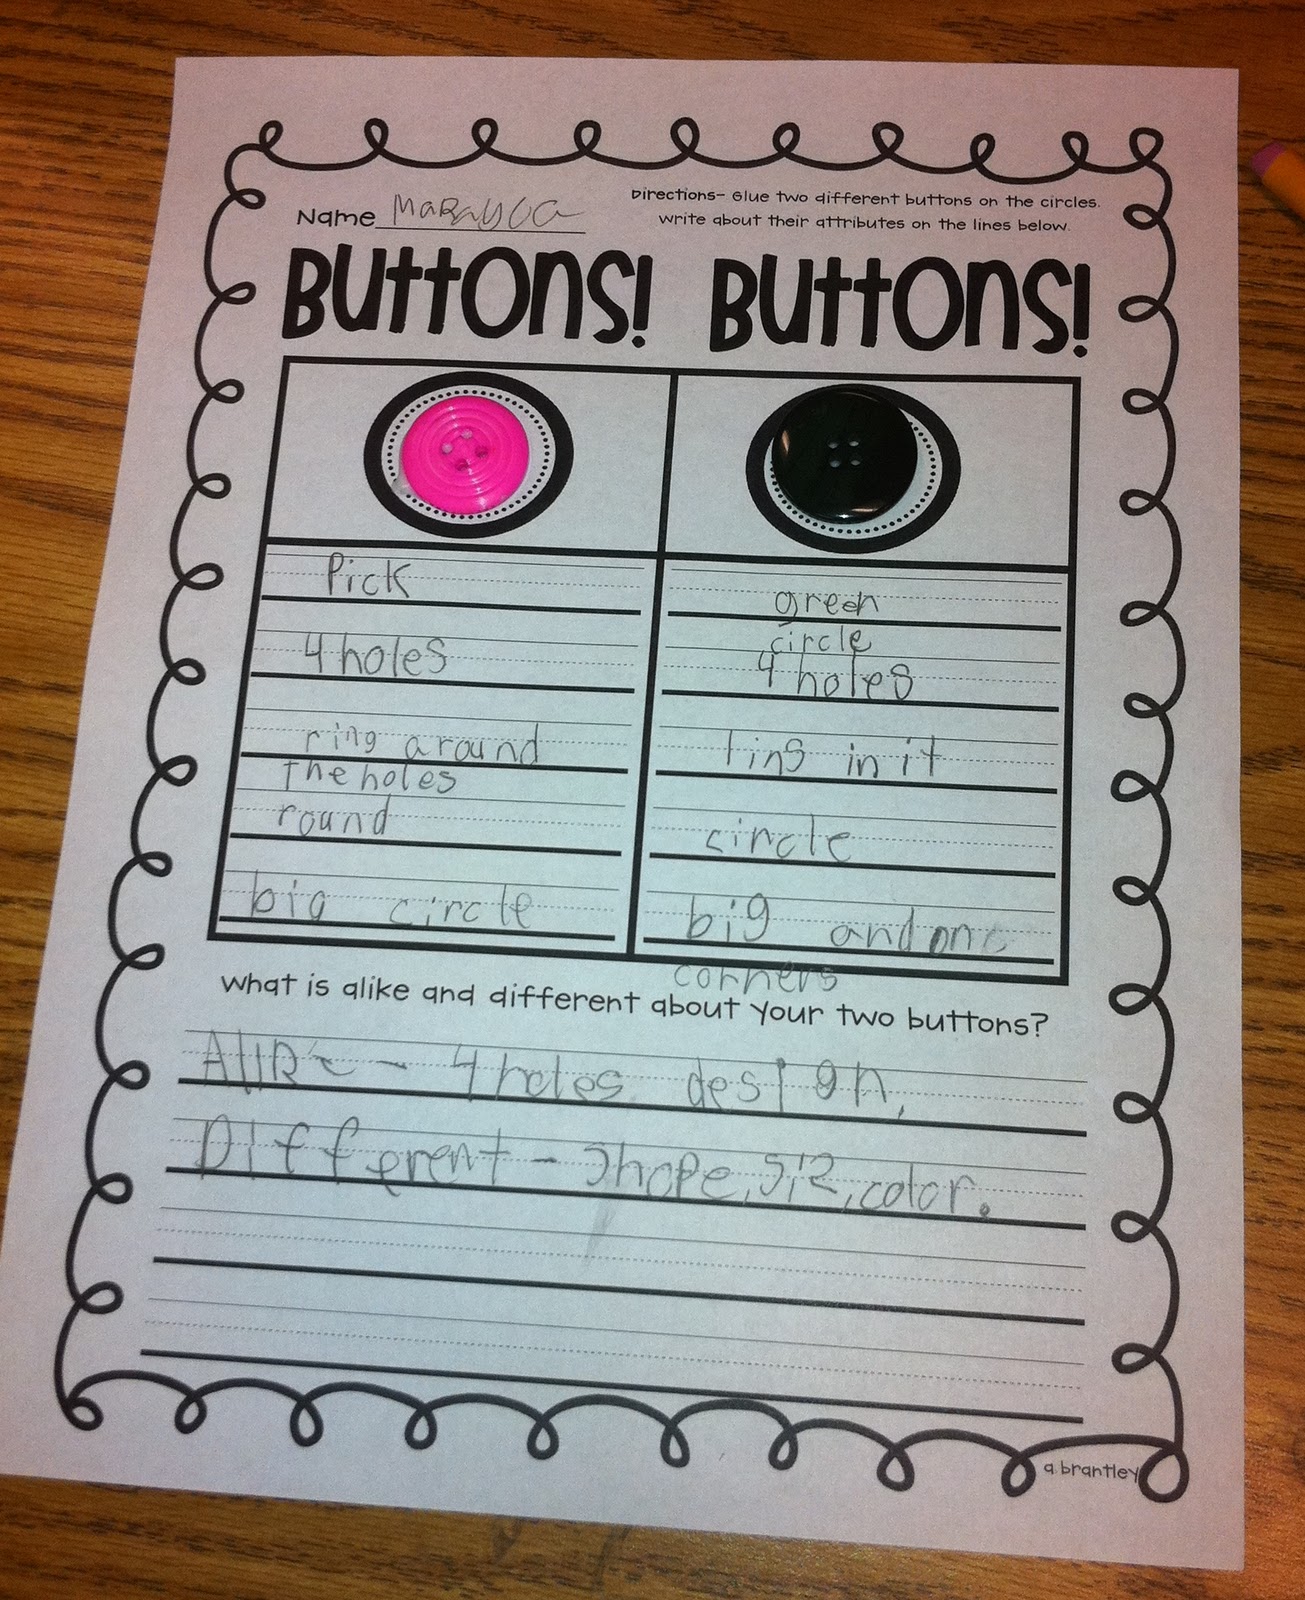 Directions- Glue two different buttons on the circles.
Name
Write about their attributes on the lines below.
Buttons! Buttons!
Pick
4 holes
ring around
the holes
round
big circle
green
circle
4 holes
lins in it
circle
big and
corners
What is alike and different about your two buttons?
4 holes design,
Different - shape, siz, color.
a. brantley